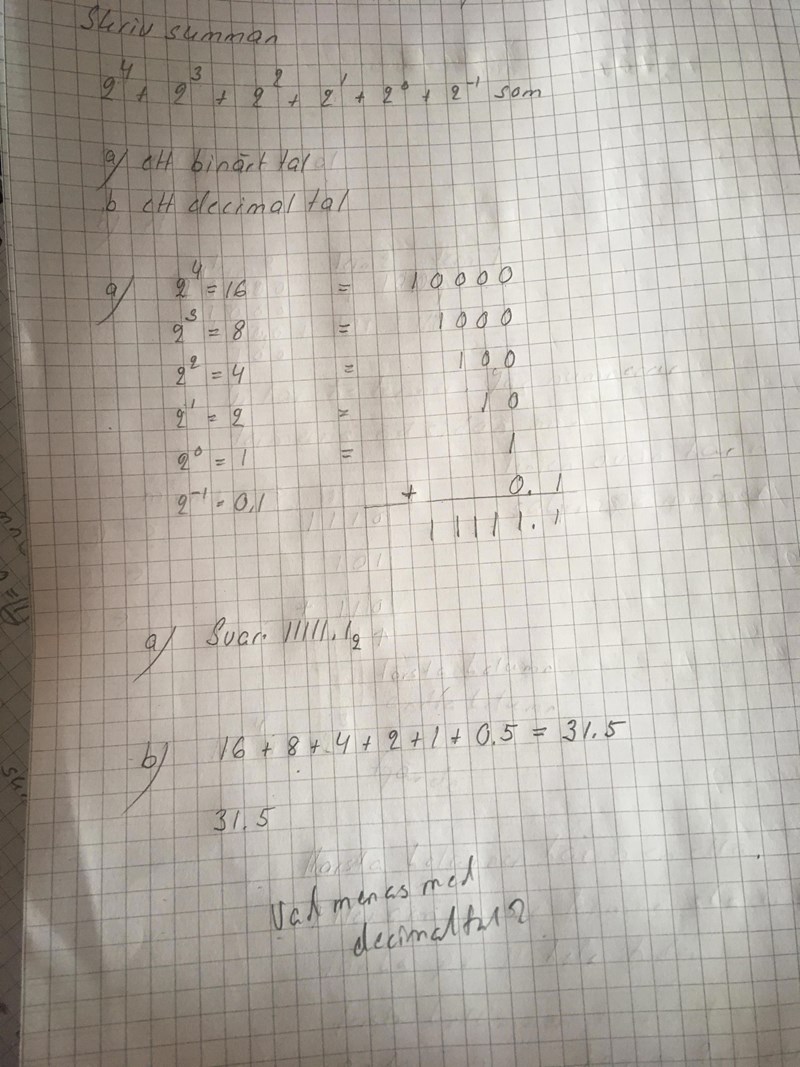 Skriv summan
2⁴ + 2³ + 2² + 2¹ + 2⁰ + 2⁻¹ som
a) ett binärt tal
b ett decimal tal
a) 2⁴ = 16 = 10000
2³ = 8 = 1000
2² = 4 = 100
2¹ = 2 = 10
2⁰ = 1 = 1
2⁻¹ = 0,1 + 0.1
11111.1
a) Svar. 11111.1₂
b) 16 + 8 + 4 + 2 + 1 + 0.5 = 31.5
31.5
Vad menas med
decimaltal?